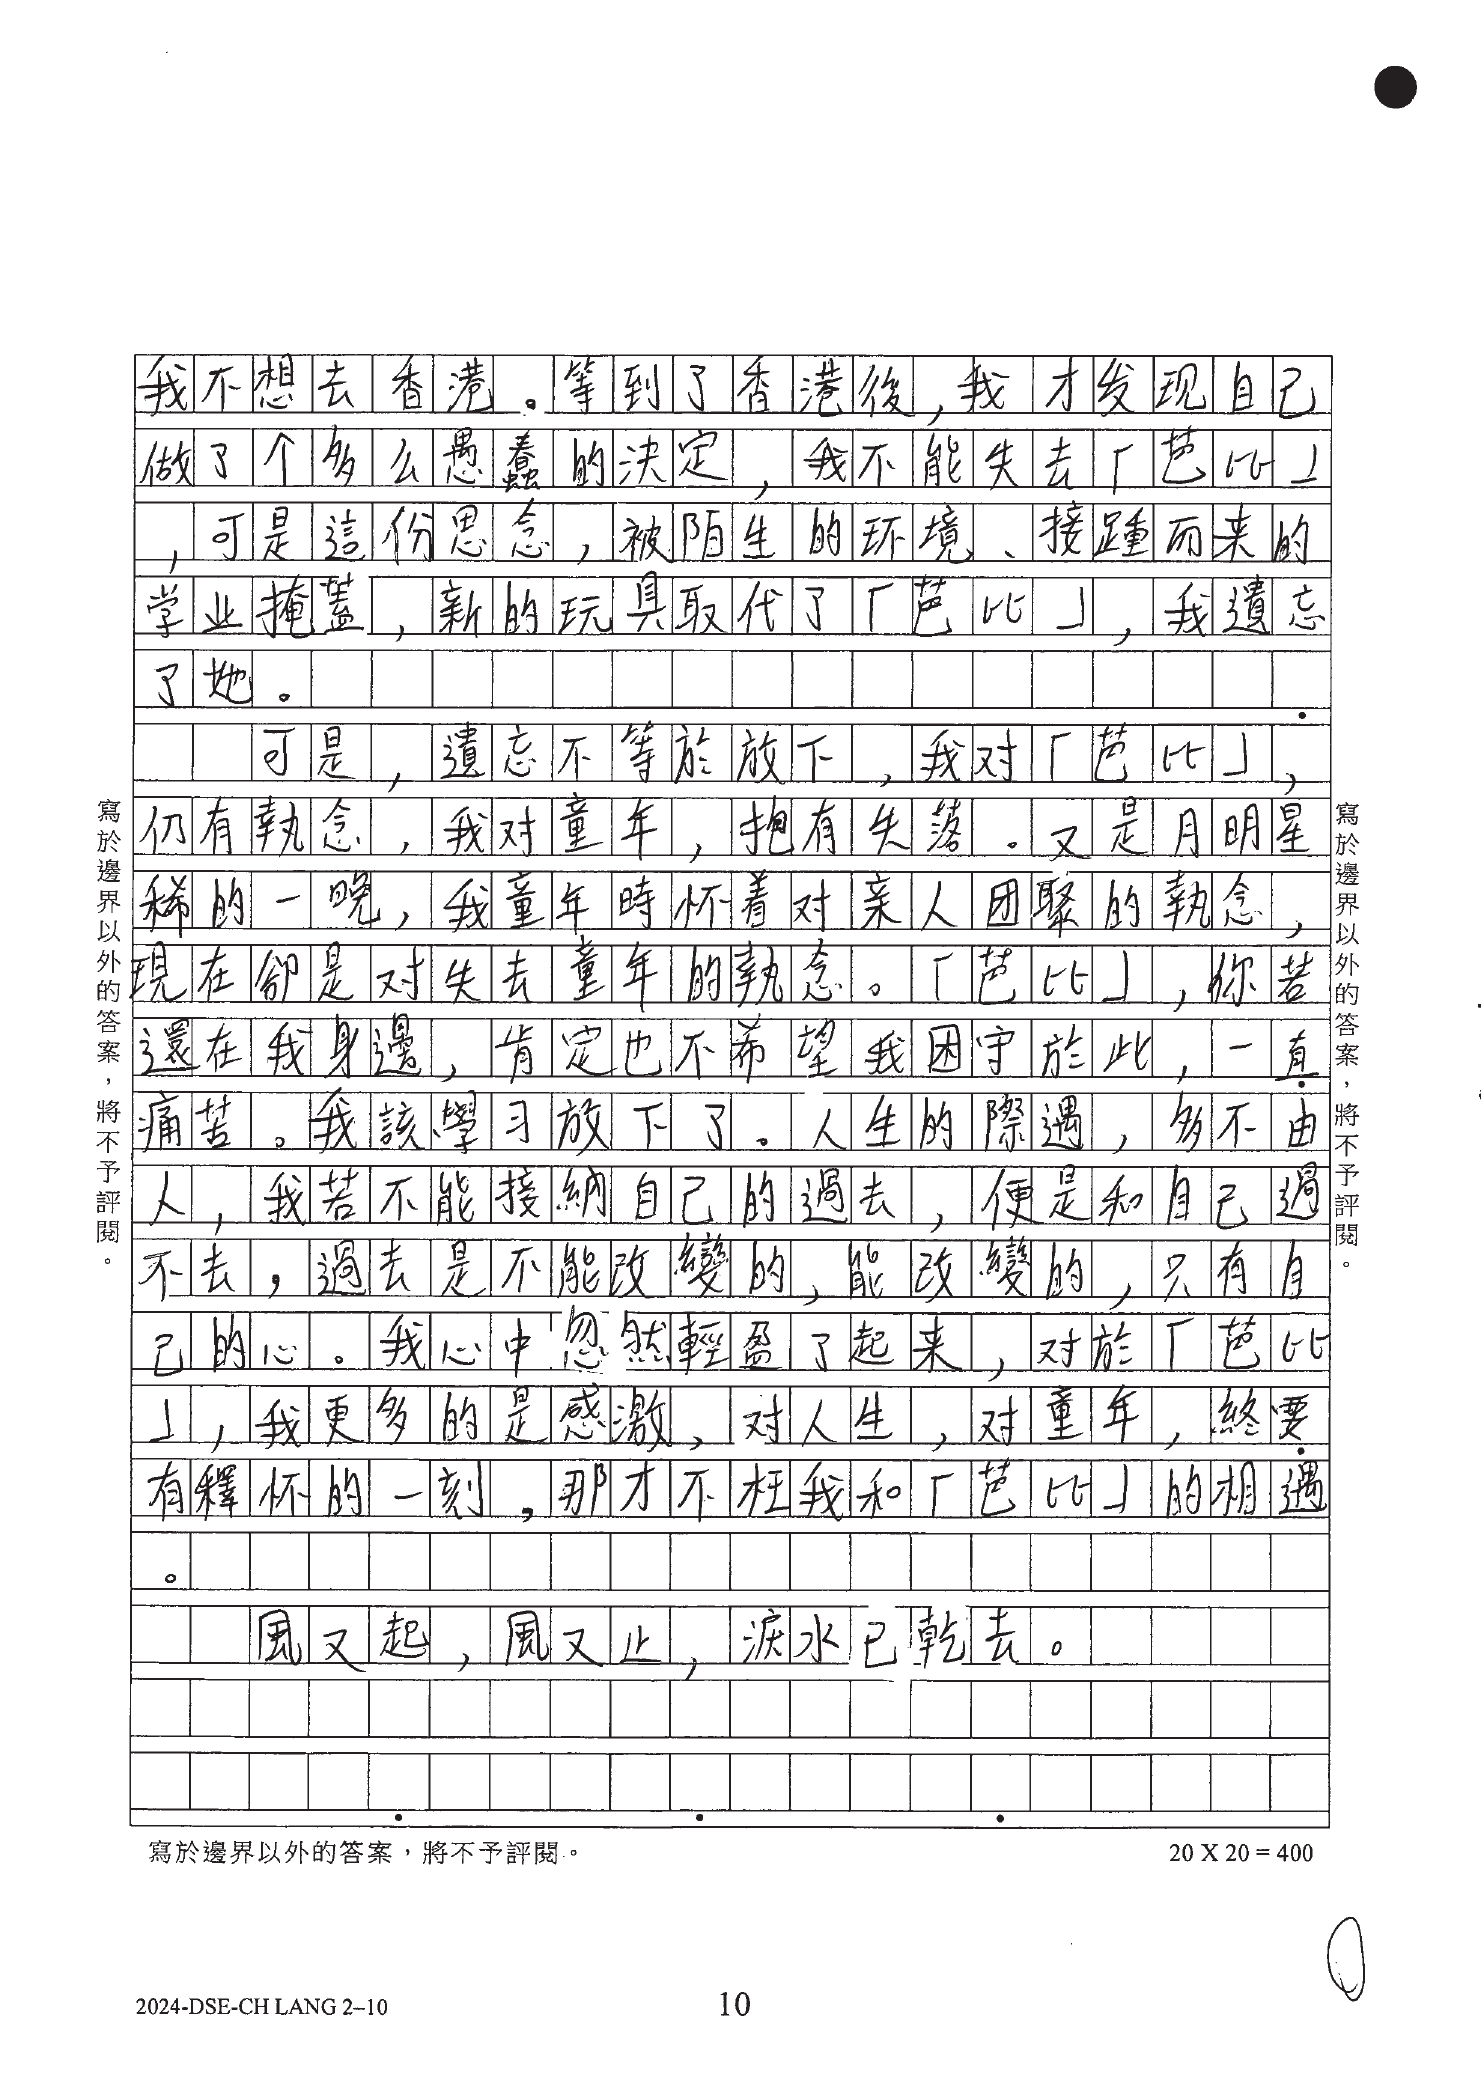 我不想去香港。等到了香港後，我才发现自己
做了个多么愚蠢的決定，我不能失去「芭比」
，可是這份思念，被陌生的环境、接踵而来的
学业掩蓋，新的玩具取代了「芭比」，我遺忘
了她。
可是，遺忘不等於放下，我对「芭比」，
仍有執念，我对童年，抱有失落。又是月明星
稀的一晚，我童年時怀着对亲人团聚的執念，
現在卻是对失去童年的執念。「芭比」，你若
還在我身邊，肯定也不希望我困守於此，一直
痛苦。我該學习放下了。人生的際遇，多不由
人，我若不能接納自己的過去，便是和自己過
不去，過去是不能改變的，能改變的，只有自
己的心。我心中忽然輕盈了起来，对於「芭比
」，我更多的是感激，对人生，对童年，終要
有釋怀的一刻，那才不枉我和「芭比」的相遇
。
風又起，風又止，淚水已乾去。
寫於邊界以外的答案，將不予評閱。
寫於邊界以外的答案，將不予評閱。
寫於邊界以外的答案，將不予評閱。
20 X 20 = 400
2024-DSE-CH LANG 2–10
10